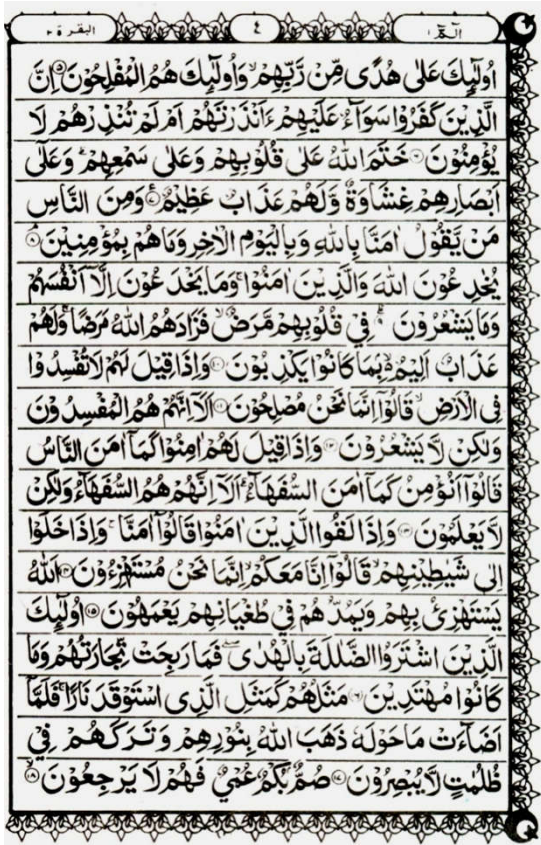 الٓمّٓ ١ ٤ البقرة ٢
اُولٰٓئِكَ عَلٰى هُدًى مِّنْ رَّبِّهِمْ ۙ وَاُولٰٓئِكَ هُمُ الْمُفْلِحُوْنَ ۝۵ اِنَّ
الَّذِيْنَ كَفَرُوْا سَوَآءٌ عَلَيْهِمْ ءَاَنْذَرْتَهُمْ اَمْ لَمْ تُنْذِرْهُمْ لَا
يُؤْمِنُوْنَ ۝۶ خَتَمَ اللّٰهُ عَلٰى قُلُوْبِهِمْ وَعَلٰى سَمْعِهِمْ ؕ وَعَلٰٓى
اَبْصَارِهِمْ غِشَاوَةٌ وَّلَهُمْ عَذَابٌ عَظِيْمٌ ۝۷ وَمِنَ النَّاسِ
مَنْ يَّقُوْلُ اٰمَنَّا بِاللّٰهِ وَبِالْيَوْمِ الْاٰخِرِ وَمَا هُمْ بِمُؤْمِنِيْنَ ۝۸
يُخٰدِعُوْنَ اللّٰهَ وَالَّذِيْنَ اٰمَنُوْا ۚ وَمَا يَخْدَعُوْنَ اِلَّاۤ اَنْفُسَهُمْ
وَمَا يَشْعُرُوْنَ ۝۹ فِيْ قُلُوْبِهِمْ مَّرَضٌ ۙ فَزَادَهُمُ اللّٰهُ مَرَضًا ۚ وَلَهُمْ
عَذَابٌ اَلِيْمٌۢ ۙ بِمَا كَانُوْا يَكْذِبُوْنَ ۝۱۰ وَاِذَا قِيْلَ لَهُمْ لَا تُفْسِدُوْا
فِى الْاَرْضِ ۙ قَالُوْٓا اِنَّمَا نَحْنُ مُصْلِحُوْنَ ۝۱۱ اَلَاۤ اِنَّهُمْ هُمُ الْمُفْسِدُوْنَ
وَلٰكِنْ لَّا يَشْعُرُوْنَ ۝۱۲ وَاِذَا قِيْلَ لَهُمْ اٰمِنُوْا كَمَآ اٰمَنَ النَّاسُ
قَالُوْٓا اَنُؤْمِنُ كَمَآ اٰمَنَ السُّفَهَآءُ ؕ اَلَاۤ اِنَّهُمْ هُمُ السُّفَهَآءُ وَلٰكِنْ
لَّا يَعْلَمُوْنَ ۝۱۳ وَاِذَا لَقُوا الَّذِيْنَ اٰمَنُوْا قَالُوْٓا اٰمَنَّا ۚ وَاِذَا خَلَوْا
اِلٰى شَيٰطِيْنِهِمْ ۙ قَالُوْٓا اِنَّا مَعَكُمْ ۙ اِنَّمَا نَحْنُ مُسْتَهْزِءُوْنَ ۝۱۴ اَللّٰهُ
يَسْتَهْزِئُ بِهِمْ وَيَمُدُّهُمْ فِيْ طُغْيَانِهِمْ يَعْمَهُوْنَ ۝۱۵ اُولٰٓئِكَ
الَّذِيْنَ اشْتَرَوُا الضَّلٰلَةَ بِالْهُدٰى ۠ فَمَا رَبِحَتْ تِّجَارَتُهُمْ وَمَا
كَانُوْا مُهْتَدِيْنَ ۝۱۶ مَثَلُهُمْ كَمَثَلِ الَّذِى اسْتَوْقَدَ نَارًا ۚ فَلَمَّآ
اَضَآءَتْ مَا حَوْلَهٗ ذَهَبَ اللّٰهُ بِنُوْرِهِمْ وَتَرَكَهُمْ فِيْ
ظُلُمٰتٍ لَّا يُبْصِرُوْنَ ۝۱۷ صُمٌّۢ بُكْمٌ عُمْيٌ فَهُمْ لَا يَرْجِعُوْنَ ۝۱۸